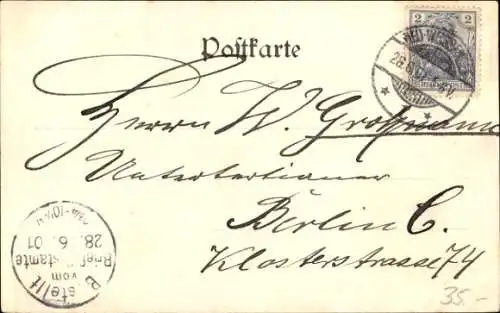 2 2
Postkarte
NEU-WE
26.6.01
Herrn W. Großmann
Untertertianer
Berlin C.
Klosterstrasse 74
Bestellt
vom
Briefpostamte
28. 6. 01
35.-